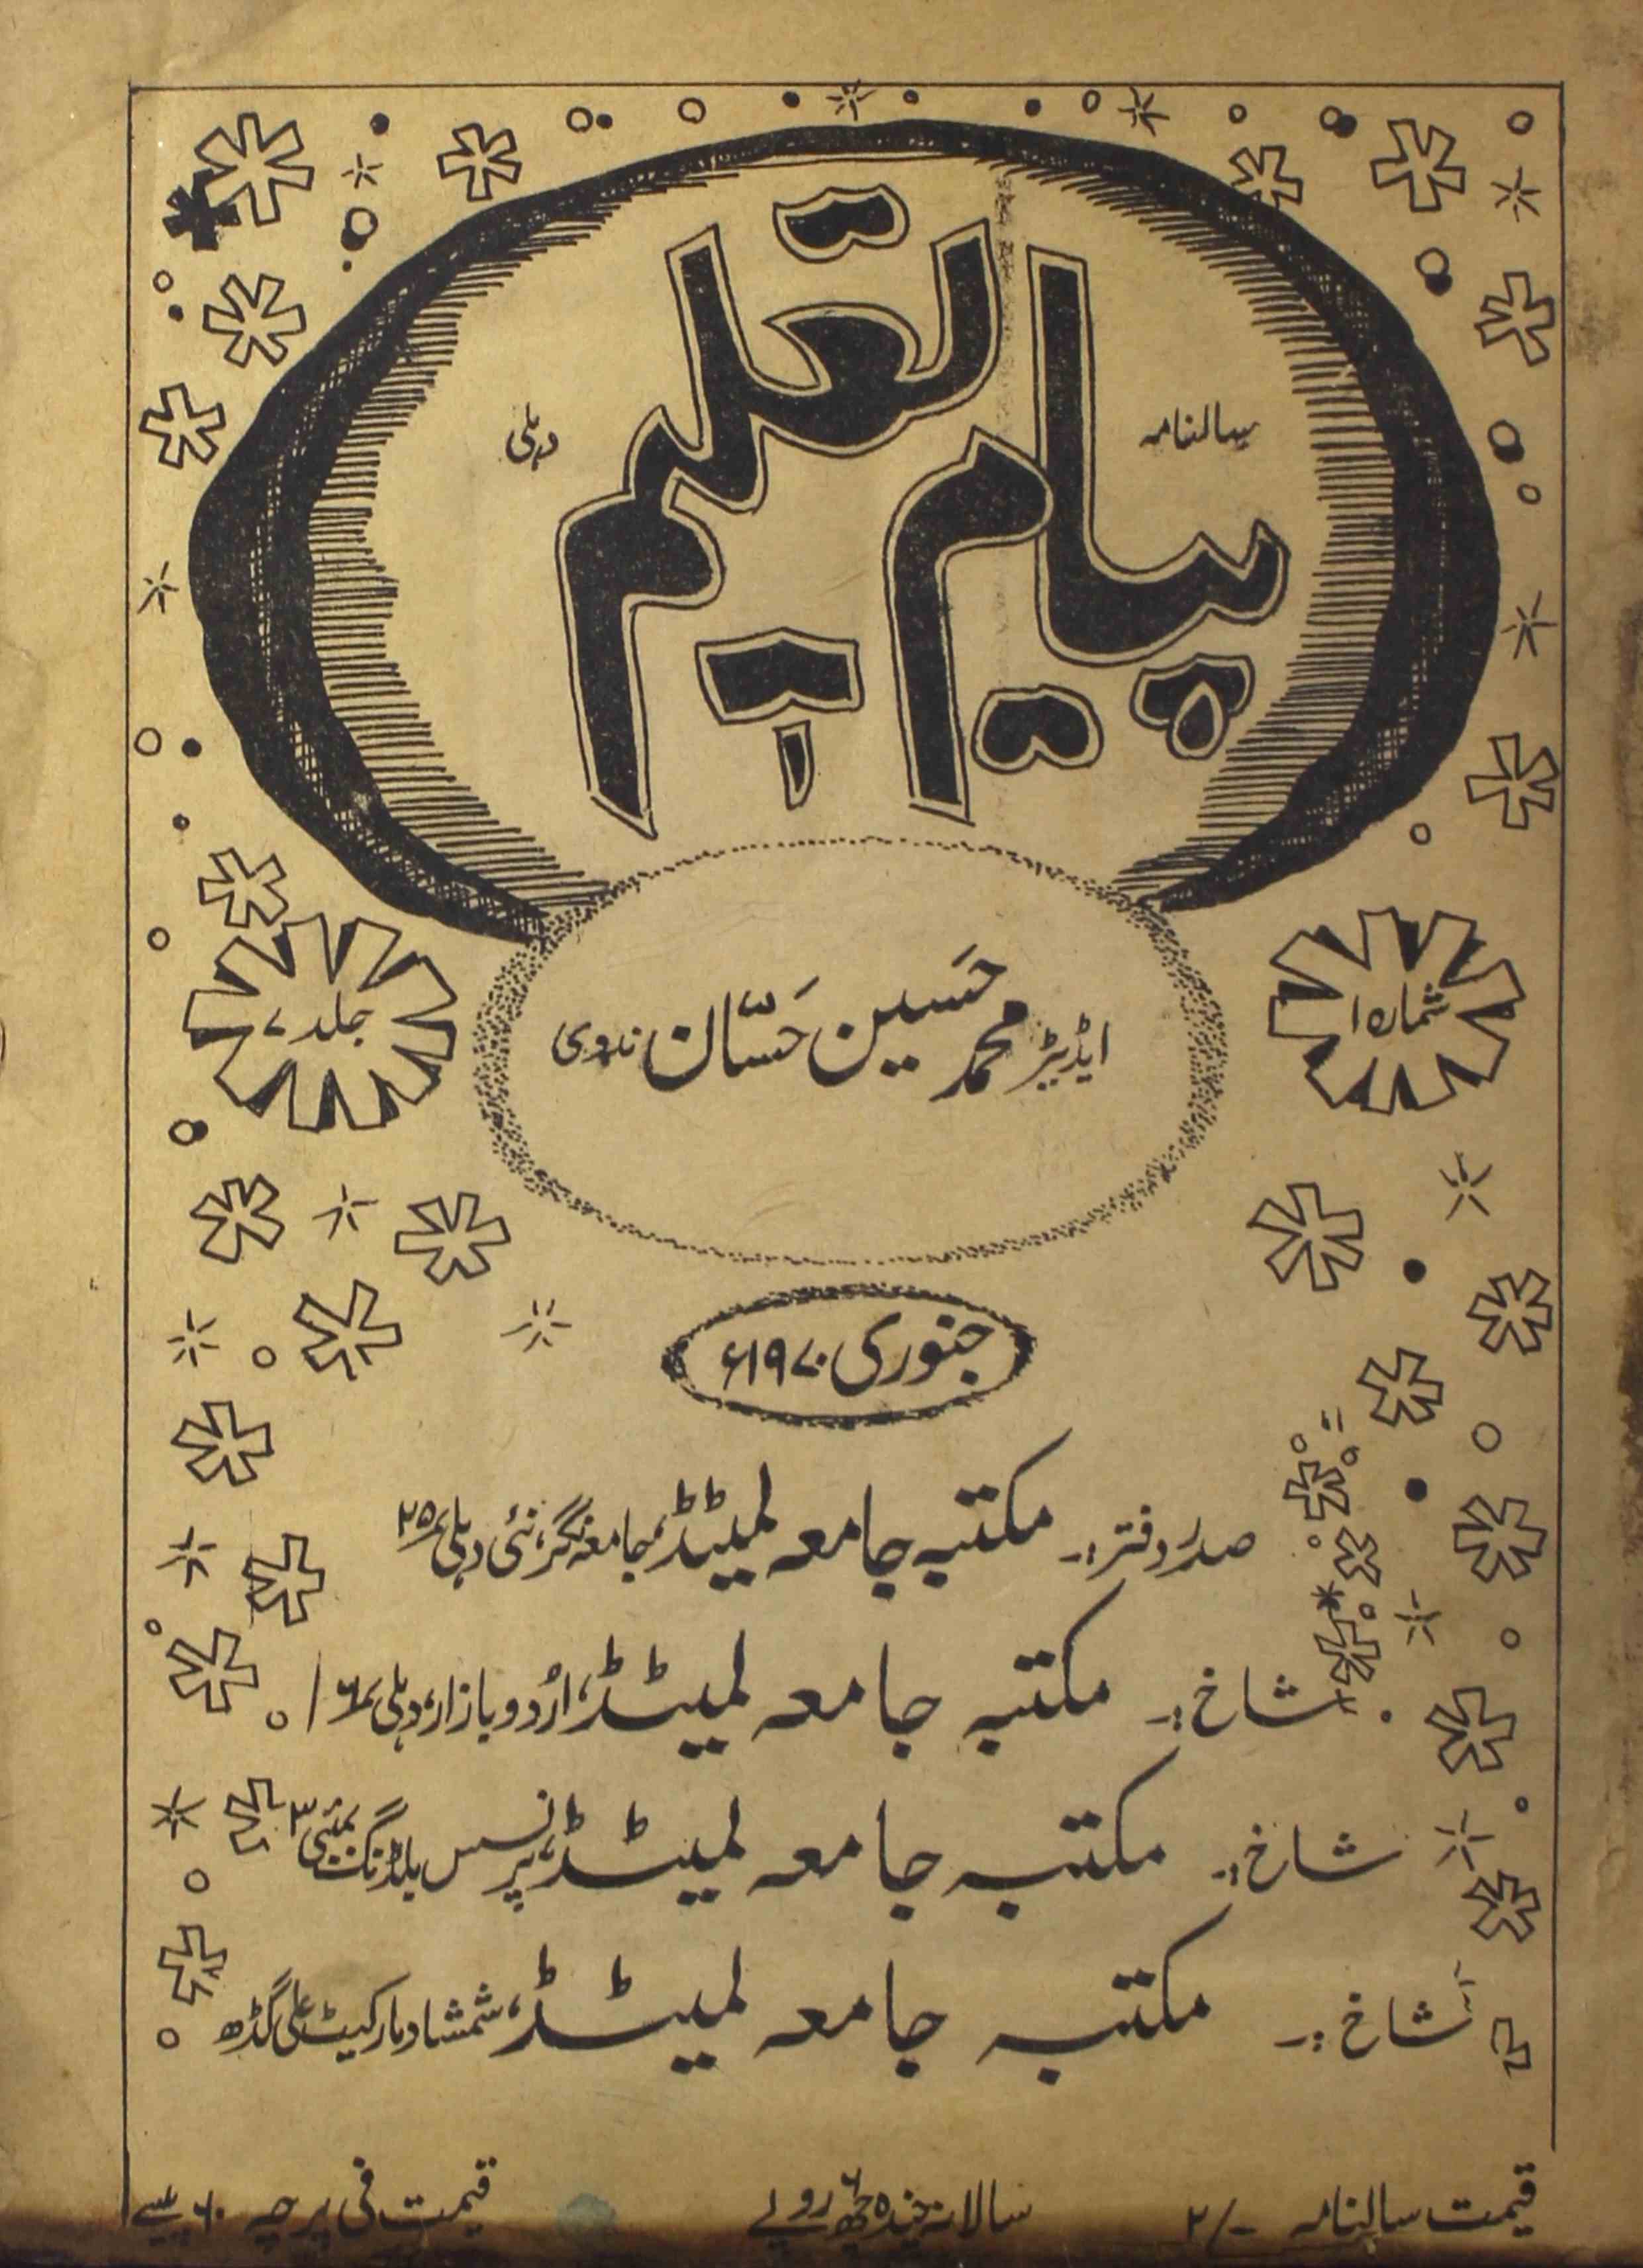 سالنامہ
پیام تعلیم
دہلی
شمارہ ۱
ایڈیٹر محمد حسین حسّان ندوی
جلد ۷
جنوری ۱۹۷۰ء
صدر دفتر:۔ مکتبہ جامعہ لمیٹڈ، جامعہ نگر، نئی دہلی ۲۵
شاخ:۔ مکتبہ جامعہ لمیٹڈ، اردو بازار، دہلی ۶
شاخ:۔ مکتبہ جامعہ لمیٹڈ، پرنسس بلڈنگ بمبئی ۳
شاخ:۔ مکتبہ جامعہ لمیٹڈ، شمشاد مارکیٹ علی گڈھ
قیمت سالنامہ ۲/-
سالانہ چندہ چھ روپے
قیمت فی پرچہ ۶۰ پیسے